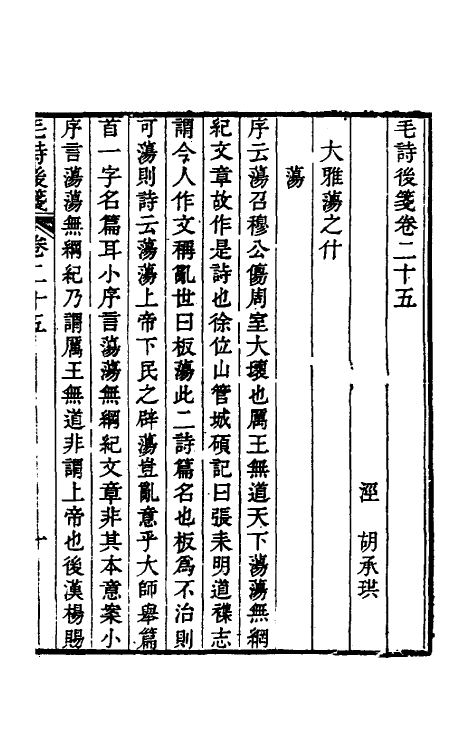 毛詩後箋卷二十五
涇　胡承珙
大雅蕩之什
蕩
序云蕩召穆公傷周室大壞也厲王無道天下蕩蕩無綱
紀文章故作是詩也徐位山管城碩記曰張耒明道襍志
謂今人作文稱亂世曰板蕩此二詩篇名也板為不治則
可蕩則詩云蕩蕩上帝下民之辟蕩豈亂意乎大師舉篇
首一字名篇耳小序言蕩蕩無綱紀文章非其本意案小
序言蕩蕩無綱紀乃謂厲王無道非謂上帝也後漢楊賜
毛詩後箋　卷二十五　一